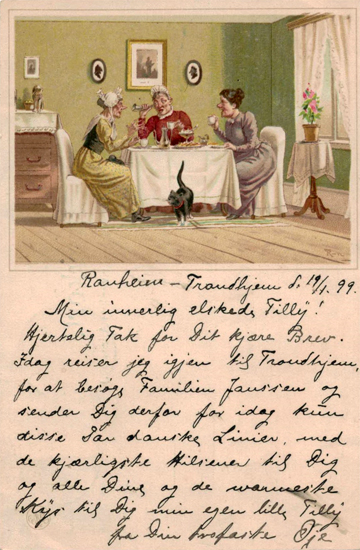 Ranheim - Trondhjem d. 19/1. 99.
Min inderlig elskede Tilly!
Hjertelig Tak for Dit kjære Brev.
Idag reiser jeg igjen til Trondhjem,
for at besøge Familien Janssen og
sender Dig derfor for idag kun
disse Par danske Linier, med
de kjærligste Hilsener til Dig
og alle Dine og de varmeste
Kys til Dig min egen lille Tilly
fra Din trofaste